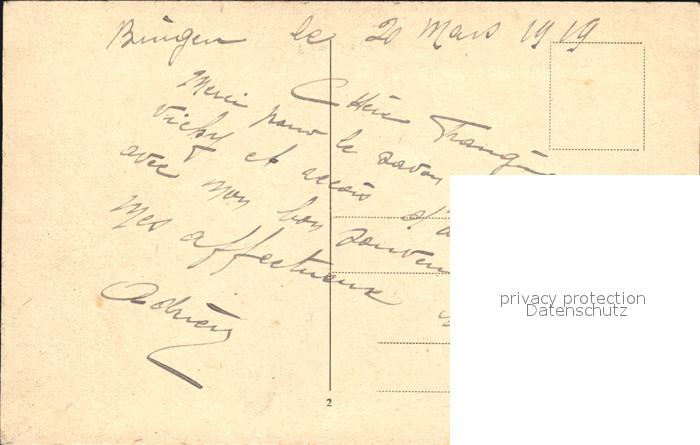 Bingen le 20 Mars 1919
Chère
Merci pour le savon
Vichy et
avec mon bon souvenir
Mes affectueux
Adrien
2
privacy protection
Datenschutz